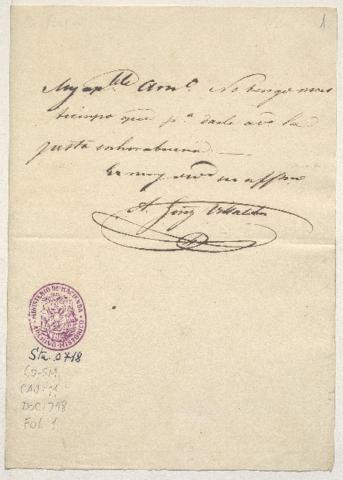 1
Muy ap.ble Am.o No tengo mas
tiempo que p.a darle a V. la
justa enhorabuena
su muy
A.
MINISTERIO DE HACIENDA
ARCHIVO HISTÓRICO
Sta. 0718
CO-SM
CAJ: 11
DOC: 718
FOL: 1